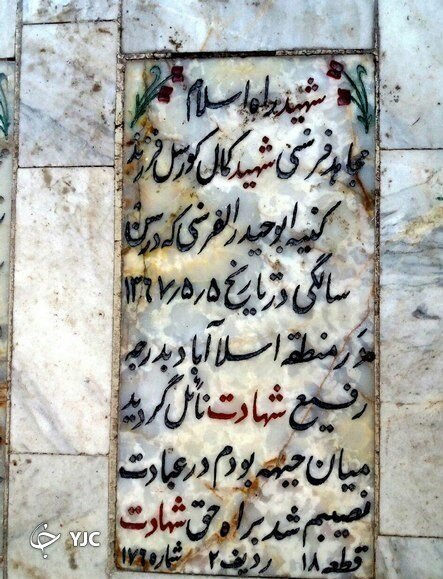 شهید راه اسلام
مجاهد فرنسی شهید کمال کورسل فرزند
کنیه ابوحیدر الفرنسی که در سن
سالگی در تاریخ ۱۳۶۷/۵/۵
در منطقه اسلام آباد بدرجه
رفیع شهادت نائل گردید
میان جبهه بودم در عبادت
نصیبم شد براه حق شهادت
قطعه ۱۸ ردیف ۲ شماره ۱۷۶
YJC